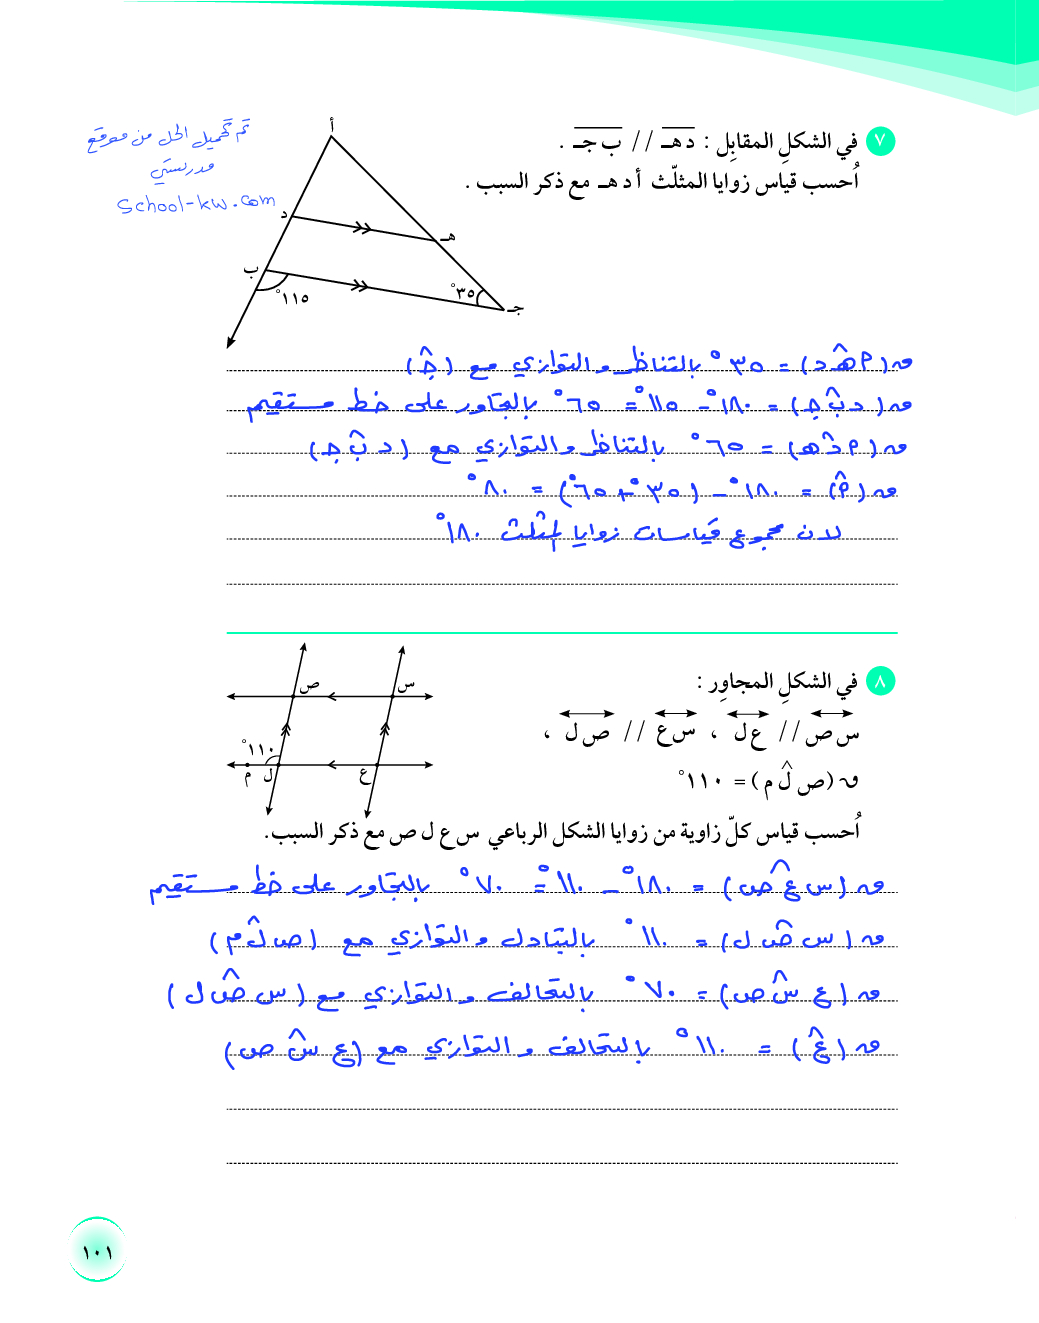 تم تكميل الحل من موقع
مدرستي
school-kw.com
٧ في الشكلِ المقابِل : د هـ // ب جـ .
اُحسب قياس زوايا المثلّث أ د هـ مع ذكر السبب .
أ
د
هـ
ب
جـ
١١٥°
٣٥°
ق (أ هـ د) = ٣٥° بالتناظر والتوازي مع (جـ)
ق (د ب جـ) = ١٨٠° - ١١٥° = ٦٥° بالتجاور على خط مستقيم
ق (أ د هـ) = ٦٥° بالتناظر والتوازي مع (د ب جـ)
ق (أ) = ١٨٠° - (٣٥° + ٦٥°) = ٨٠°
لان مجموع قياسات زوايا المثلث ١٨٠°
٨ في الشكلِ المجاوِر :
س ص // ع ل ، س ع // ص ل ،
ق (ص ل م) = ١١٠°
اُحسب قياس كلّ زاوية من زوايا الشكل الرباعي س ع ل ص مع ذكر السبب.
ص
س
١١٠°
م
ل
ع
ق (س ع ص) = ١٨٠° - ١١٠° = ٧٠° بالتجاور على خط مستقيم
ق (س ص ل) = ١١٠° بالتبادل والتوازي مع (ص ل م)
ق (ع س ص) = ٧٠° بالتحالف والتوازي مع (س ص ل)
ق (ع) = ١١٠° بالتحالف والتوازي مع (ع س ص)
١٠١